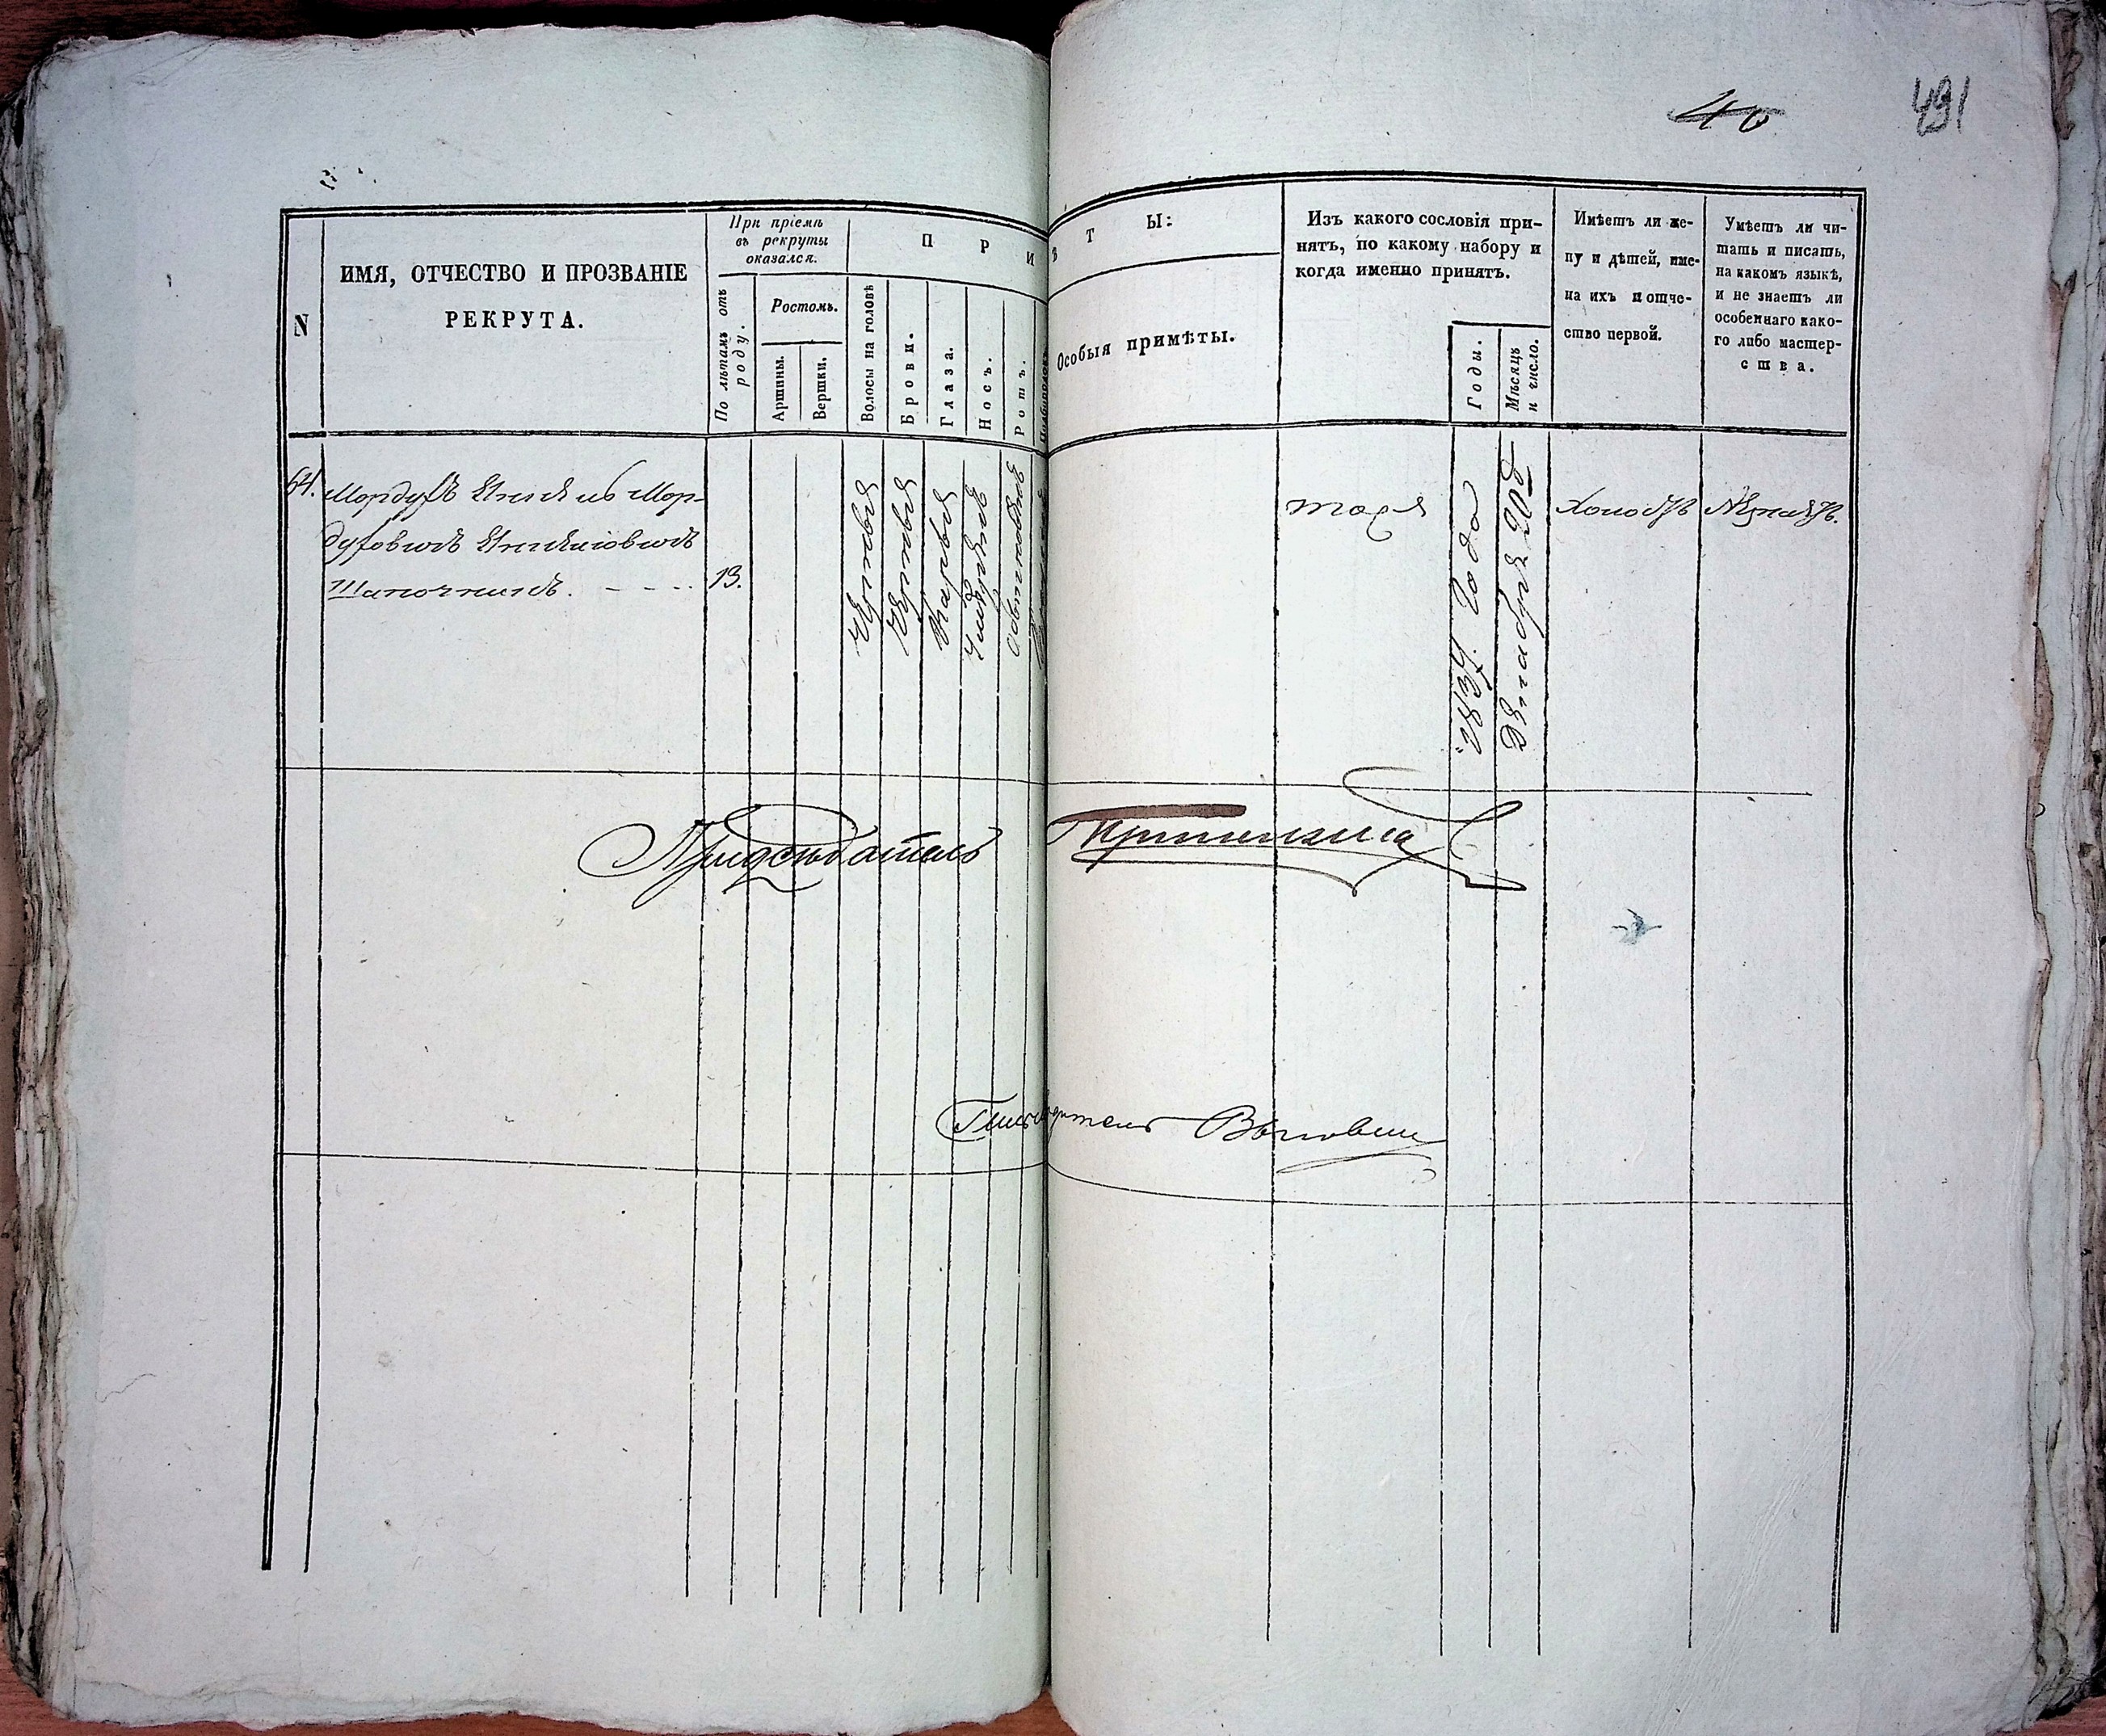 491
46
N
ИМЯ, ОТЧЕСТВО И ПРОЗВАНІЕ
РЕКРУТА.
При пріемѣ
въ рекруты
оказался.
По лѣтамъ отъ
роду.
Ростомъ.
Аршины.
Вершки.
П Р И
Волосы на головѣ
Брови.
Глаза.
Носъ.
Ротъ.
Ѣ Т Ы:
Особыя примѣты.
Изъ какого сословія при-
нятъ, по какому набору и
когда именно принятъ.
Годы.
Мѣсяцъ
и число.
Имѣетъ ли же-
ну и дѣтей, име-
на ихъ и отче-
ство первой.
Умѣетъ ли чи-
тать и писать,
на какомъ языкѣ,
и не знаетъ ли
особеннаго како-
го либо мастер-
ства.
64.
Мордухъ
Мор-
духовичъ
Шапочникъ.
13.
Черныя
Черныя
Каріе
Умѣренъ
тожъ
1837. Года
Декабря 20
Холостъ
Незнаетъ.
Предсѣдатель